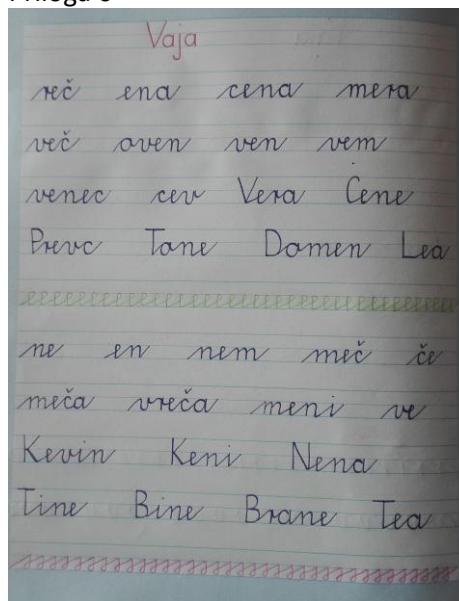 Vaja
reč ena cena mera
več oven ven vem
venec cev Vera Cene
Prevc Tone Domen Lea
ne en nem meč če
meča vreča meni ve
Kevin Keni Nena
Tine Bine Brane Tea